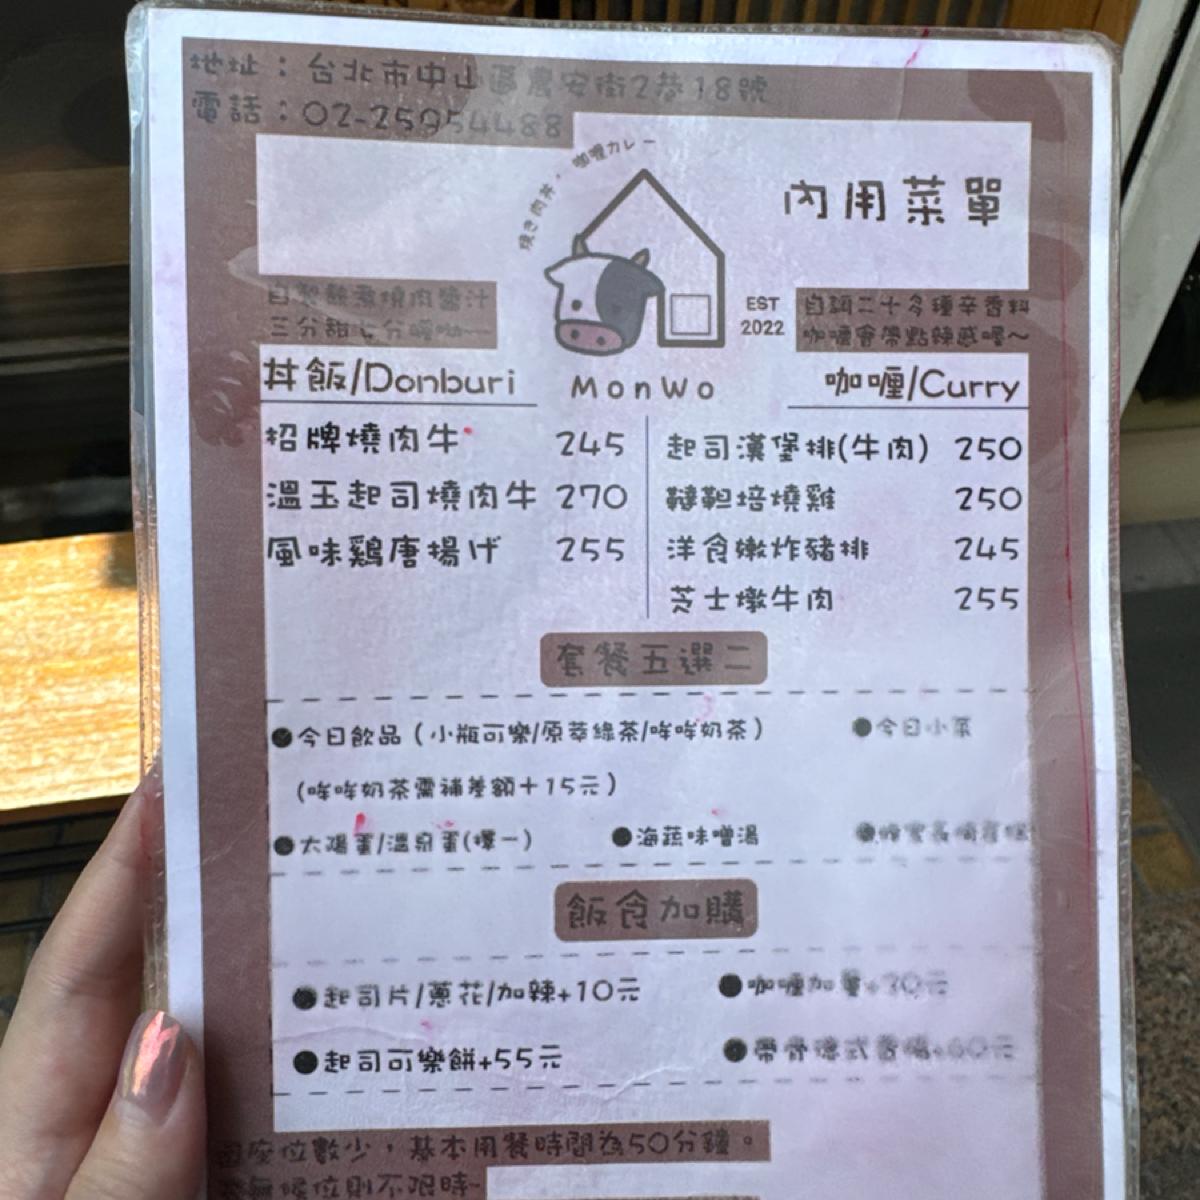 地址：台北市中山區農安街2巷18號
電話：02-25954488
燒き肉丼・咖喱カレー
內用菜單
自製熬煮燒肉醬汁
三分甜七分鹹呦~
EST
2022
自調二十多種辛香料
咖喱會帶點辣感喔~
丼飯/Donburi
MonWo
咖喱/Curry
招牌燒肉牛 245
起司漢堡排(牛肉) 250
溫玉起司燒肉牛 270
韃靼培燒雞 250
風味鶏唐揚げ 255
洋食嫩炸豬排 245
芝士燉牛肉 255
套餐五選二
●今日飲品（小瓶可樂/原萃綠茶/哞哞奶茶） ●今日小菜
（哞哞奶茶需補差額＋15元）
●太陽蛋/溫泉蛋(擇一) ●海蔬味噌湯
飯食加購
●起司片/蔥花/加辣+10元 ●咖喱加量+30元
●起司可樂餅+55元 ●帶骨德式香腸+60元
座位數少，基本用餐時間為50分鐘。
無候位則不限時~